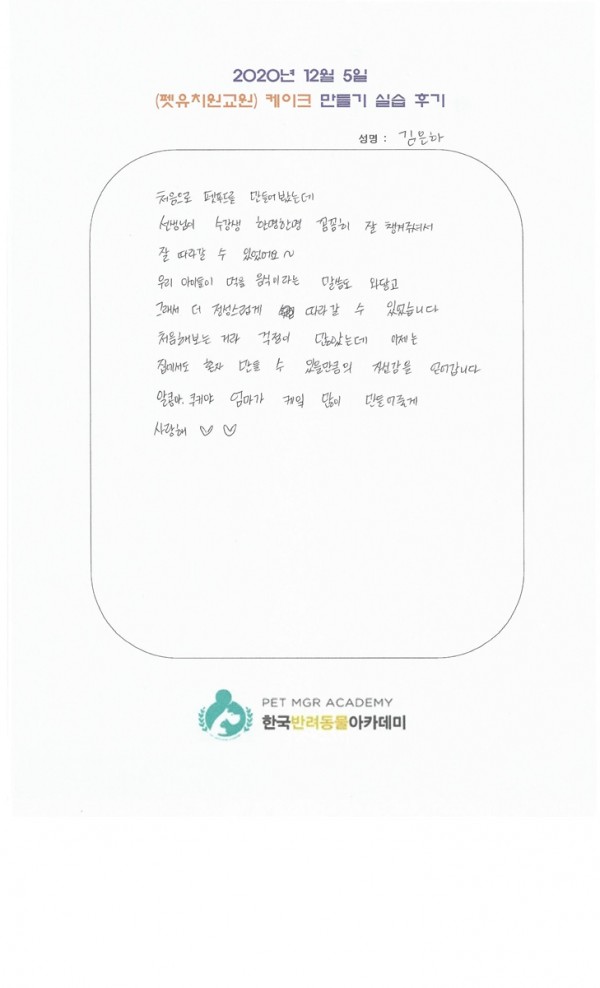 2020년 12월 5일
(펫유치원교원) 케이크 만들기 실습 후기
성명 : 김은하
처음으로 펫푸드를 만들어봤는데
선생님이 수강생 한명한명 꼼꼼히 잘 챙겨주셔서
잘 따라갈 수 있었어요~
우리 아이들이 먹을 음식이라는 말씀도 와닿고
그래서 더 정성스럽게 따라갈 수 있었습니다
처음해보는 거라 걱정이 많았는데 이제는
집에서도 혼자 만들 수 있을만큼의 자신감을 얻어갑니다
알콩아. 쿠키야 엄마가 케잌 많이 만들어줄게
사랑해 ♡ ♡
PET MGR ACADEMY
한국반려동물아카데미